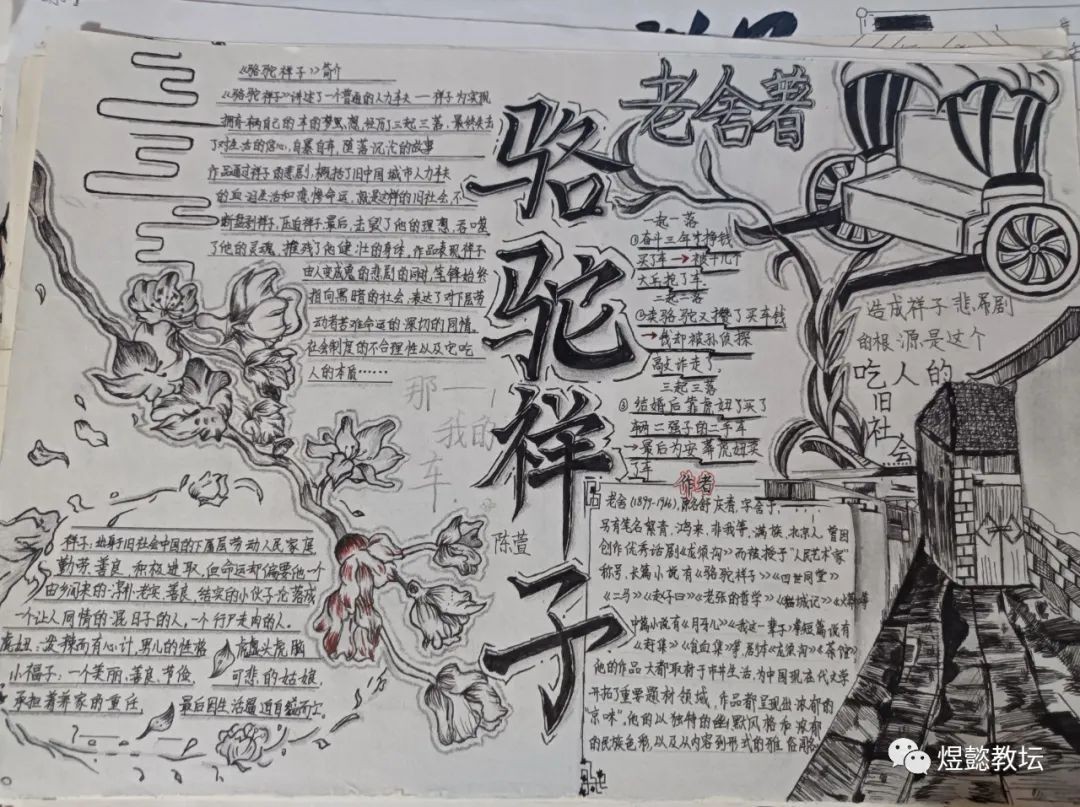 《骆驼祥子》简介
《骆驼祥子》讲述了一个普通的人力车夫——祥子为实现
拥有一辆自己的车的梦想,经历了三起三落,最终失去
了对生活的信心,自暴自弃,堕落沉沦的故事
作品通过祥子的悲剧,概括了旧中国城市人力车夫
的血泪生活和悲惨命运,就是这样的旧社会,不
断盘剥祥子,压迫祥子最后,击毁了他的理想,吞噬
了他的灵魂,摧残了他健壮的身体,作品表现祥子
由人变成鬼的悲剧的同时,笔锋始终
指向黑暗的社会,表达了对下层劳
动者苦难命运的深切的同情,
社会制度的不合理性以及它吃
人的本质……
那一
我的
车.
骆驼祥子
老舍著
陈萱
一起一落
①奋斗三年才挣钱
买了车→被十几个
大兵抢了车
二起二落
②卖骆驼又攒了买车钱
→钱却被孙侦探
敲诈走了,
三起三落
③结婚后靠虎妞了买了
辆二强子的二手车
→最后为安葬虎妞卖
了车
造成祥子悲剧
的根源是这个
吃人的
旧
社
会
作者
老舍(1899-1966),原名舒庆春,字舍予,
另有笔名絜青、鸿来、非我等,满族,北京人,曾因
创作优秀话剧《龙须沟》而被授于"人民艺术家"
称号,长篇小说有《骆驼祥子》《四世同堂》
《二马》《赵子曰》《老张的哲学》《猫城记》
中篇小说有《月牙儿》《我这一辈子》等短篇说有
《赶集》《贫血集》等,剧本《龙须沟》《茶馆》
他的作品大都取材于市井生活,为中国现在代文学
开拓了重要题材领域,作品都呈现出浓郁的
"京味",他因以独特的幽默风格和浓郁
的民族色彩,以及从内容到形式的雅俗
祥子:出身于旧社会中国的下层劳动人民家庭
勤劳善良,积极进取,但命运却偏要他一个
由乡间来的淳朴老实、善良、结实的小伙子沦落成
一个让人同情的混日子的人,一个行尸走肉的人.
虎妞:泼辣而有心计,男儿的性格 虎头虎脑
小福子:一个美丽、善良、节俭、可悲的姑娘
承担着养家的重任 最后因生活逼迫自缢而亡.
煜懿教坛